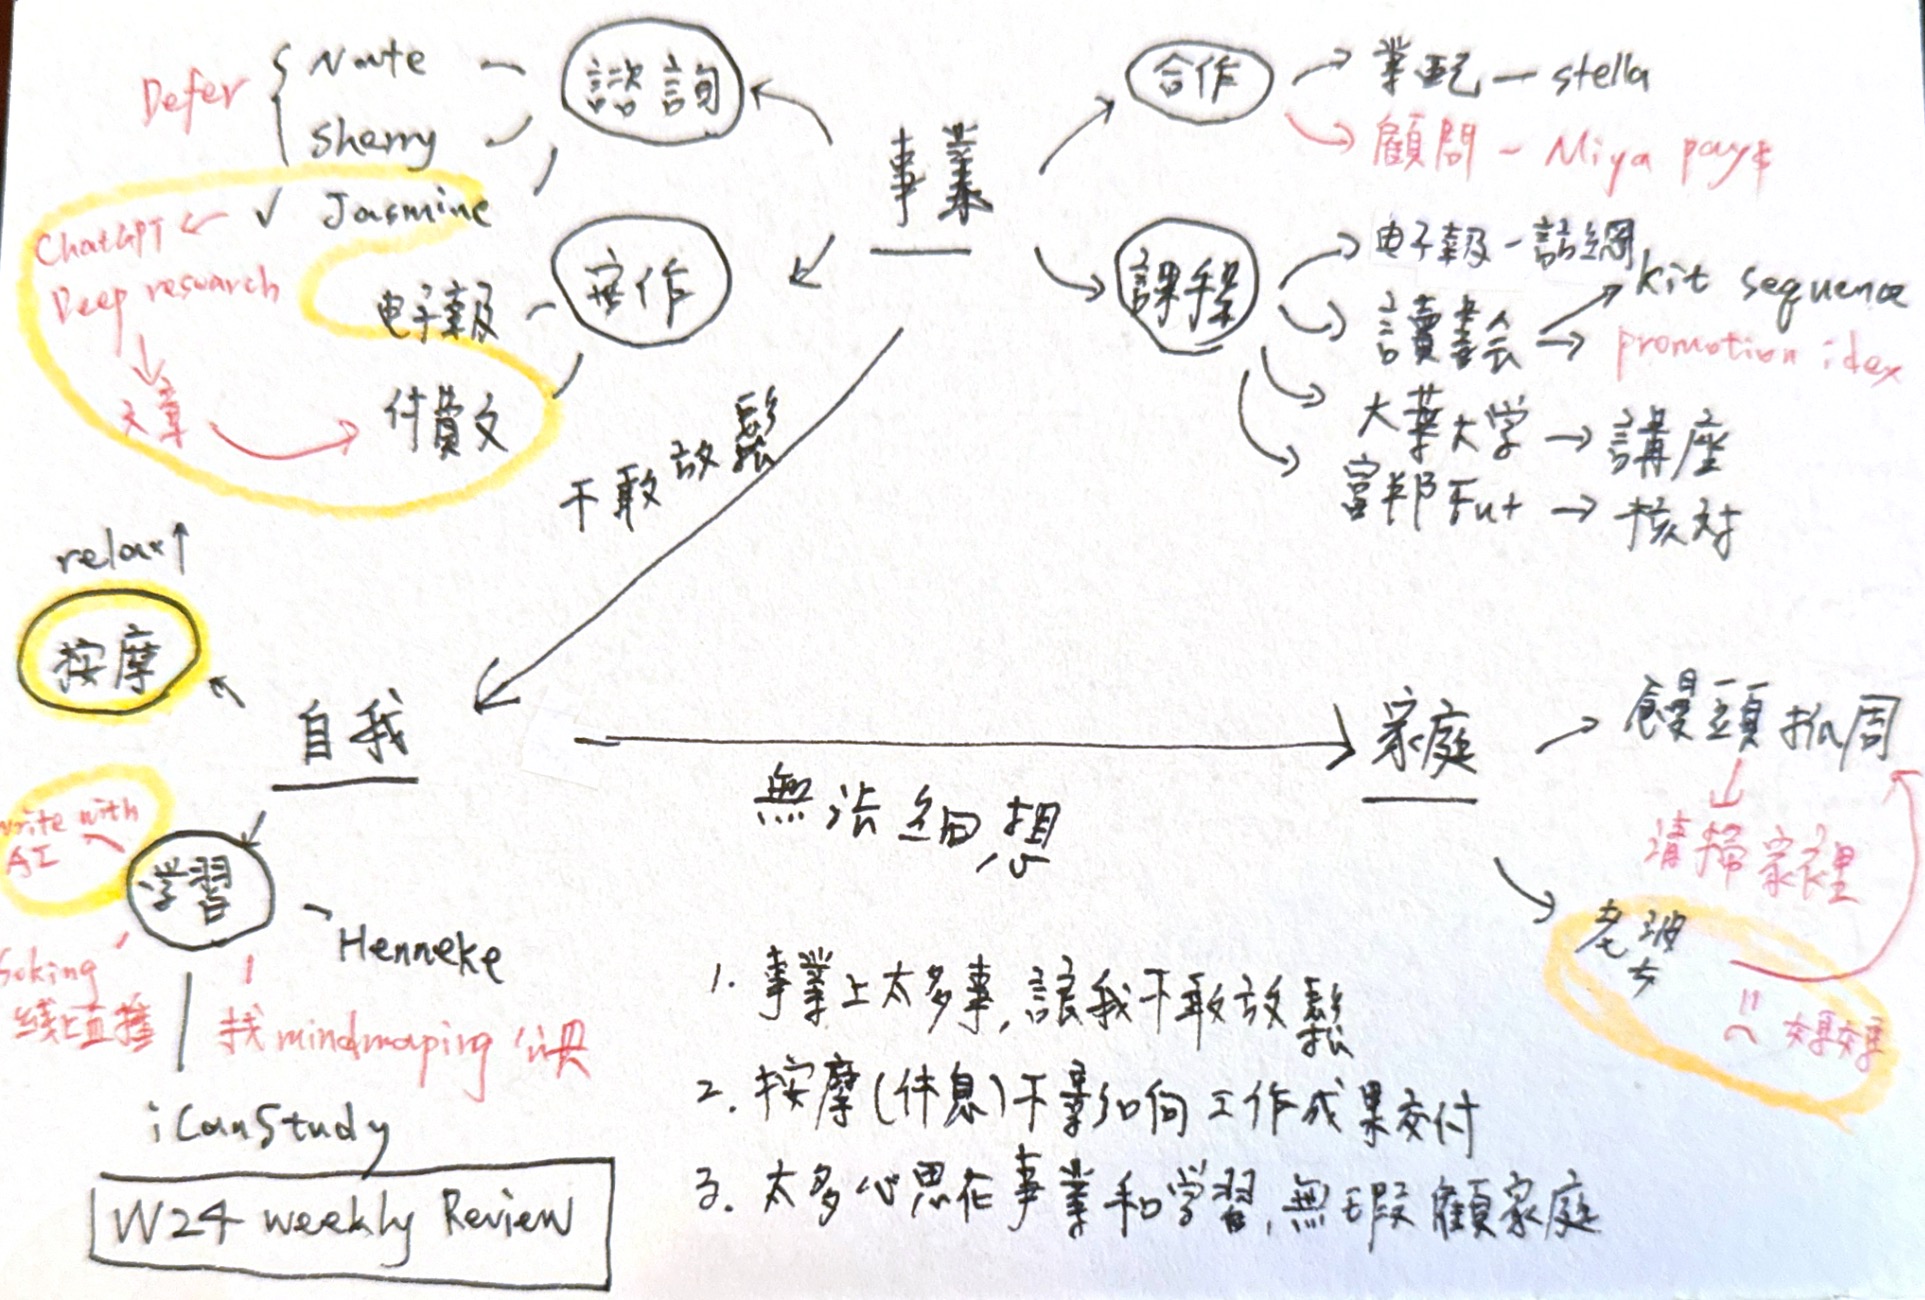 Defer
Noute
Sherry
✓ Jasmine
諮詢
ChatGPT
Deep research
文章
实作
电子報
付費文
事業
合作
業配 — stella
顧問 - Miya pay$
課程
电子報 - 話網
讀書会
kit sequence
promotion idea
大葉大学 → 講座
富邦 Fu+ → 核对
不敢放鬆
relax↑
按摩
自我
write with
AI
学習
Henneke
线上直播
找 mindmaping
iCanStudy
無法細想
家庭
饅頭抓周
清掃家裡
老婆
1. 事業上太多事, 讓我不敢放鬆
2. 按摩(休息)不影响工作成果交付
3. 太多心思在事業和学習, 無暇顧家庭
W24 weekly Review